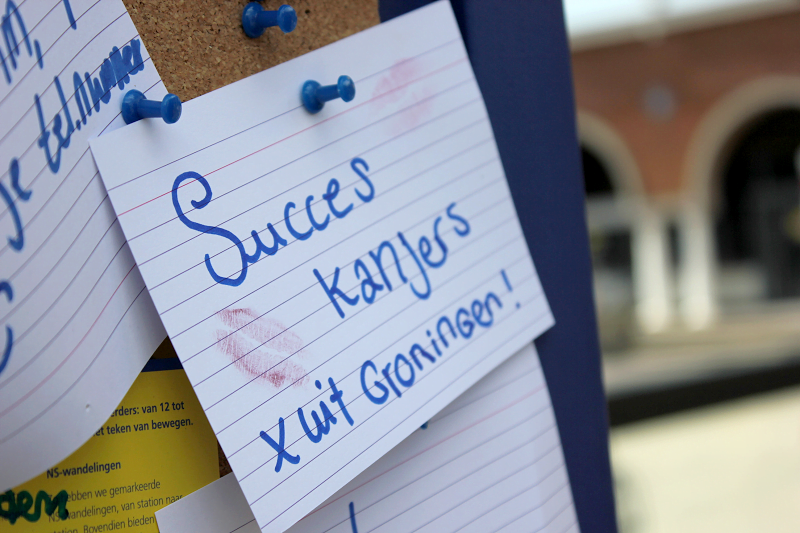 tel.nummer
Je
Succes
kanjers
x uit Groningen!
erders: van 12 tot
et teken van bewegen.
NS-wandelingen
ebben we gemarkeerde
NS-wandelingen, van station naar
ation. Bovendien bieden